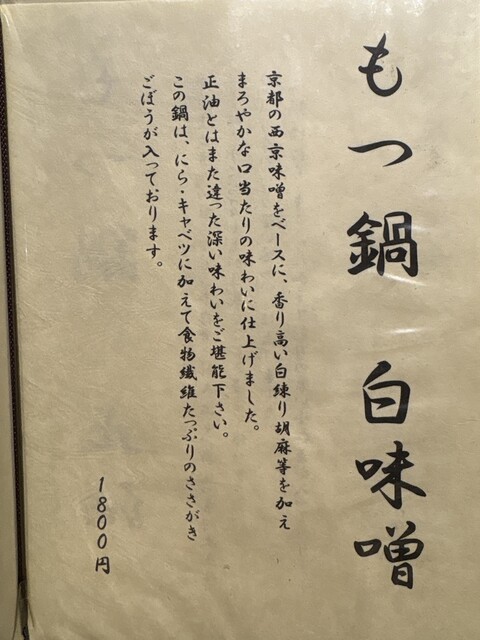 もつ鍋 白味噌
京都の西京味噌をベースに、香り高い白練り胡麻等を加え
まろやかな口当たりの味わいに仕上げました。
正油とはまた違った深い味わいをご堪能下さい。
この鍋は、にら・キャベツに加えて食物繊維たっぷりのささがき
ごぼうが入っております。
1800円